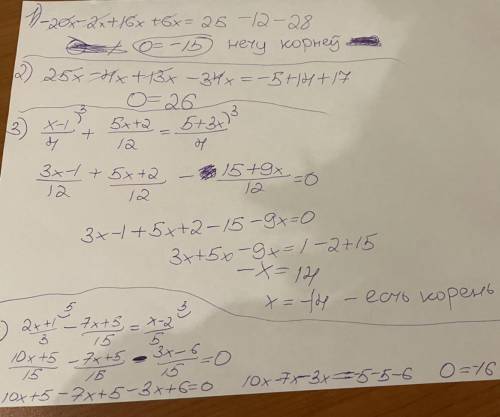 1) -20x-2x+16x+6x= 25 -12-28
0=-15) нечу корней
2) 25x-4x+13x-34x=-5+14+17
0=26
3) x-1/4 )³ + 5x+2/12 = 5+3x/4 )³
3x-1/12 + 5x+2/12 - 15+9x/12 =0
3x-1+5x+2-15-9x=0
3x+5x-9x=1-2+15
-x=14
x=-14 - есть корень
) 2x+1/3 )⁵ - 7x+5/15 = x-2/5 )³
10x+5/15 - 7x+5/15 - 3x-6/15 =0
10x+5-7x+5-3x+6=0 10x-7x-3x=-5-5-6 0=-16